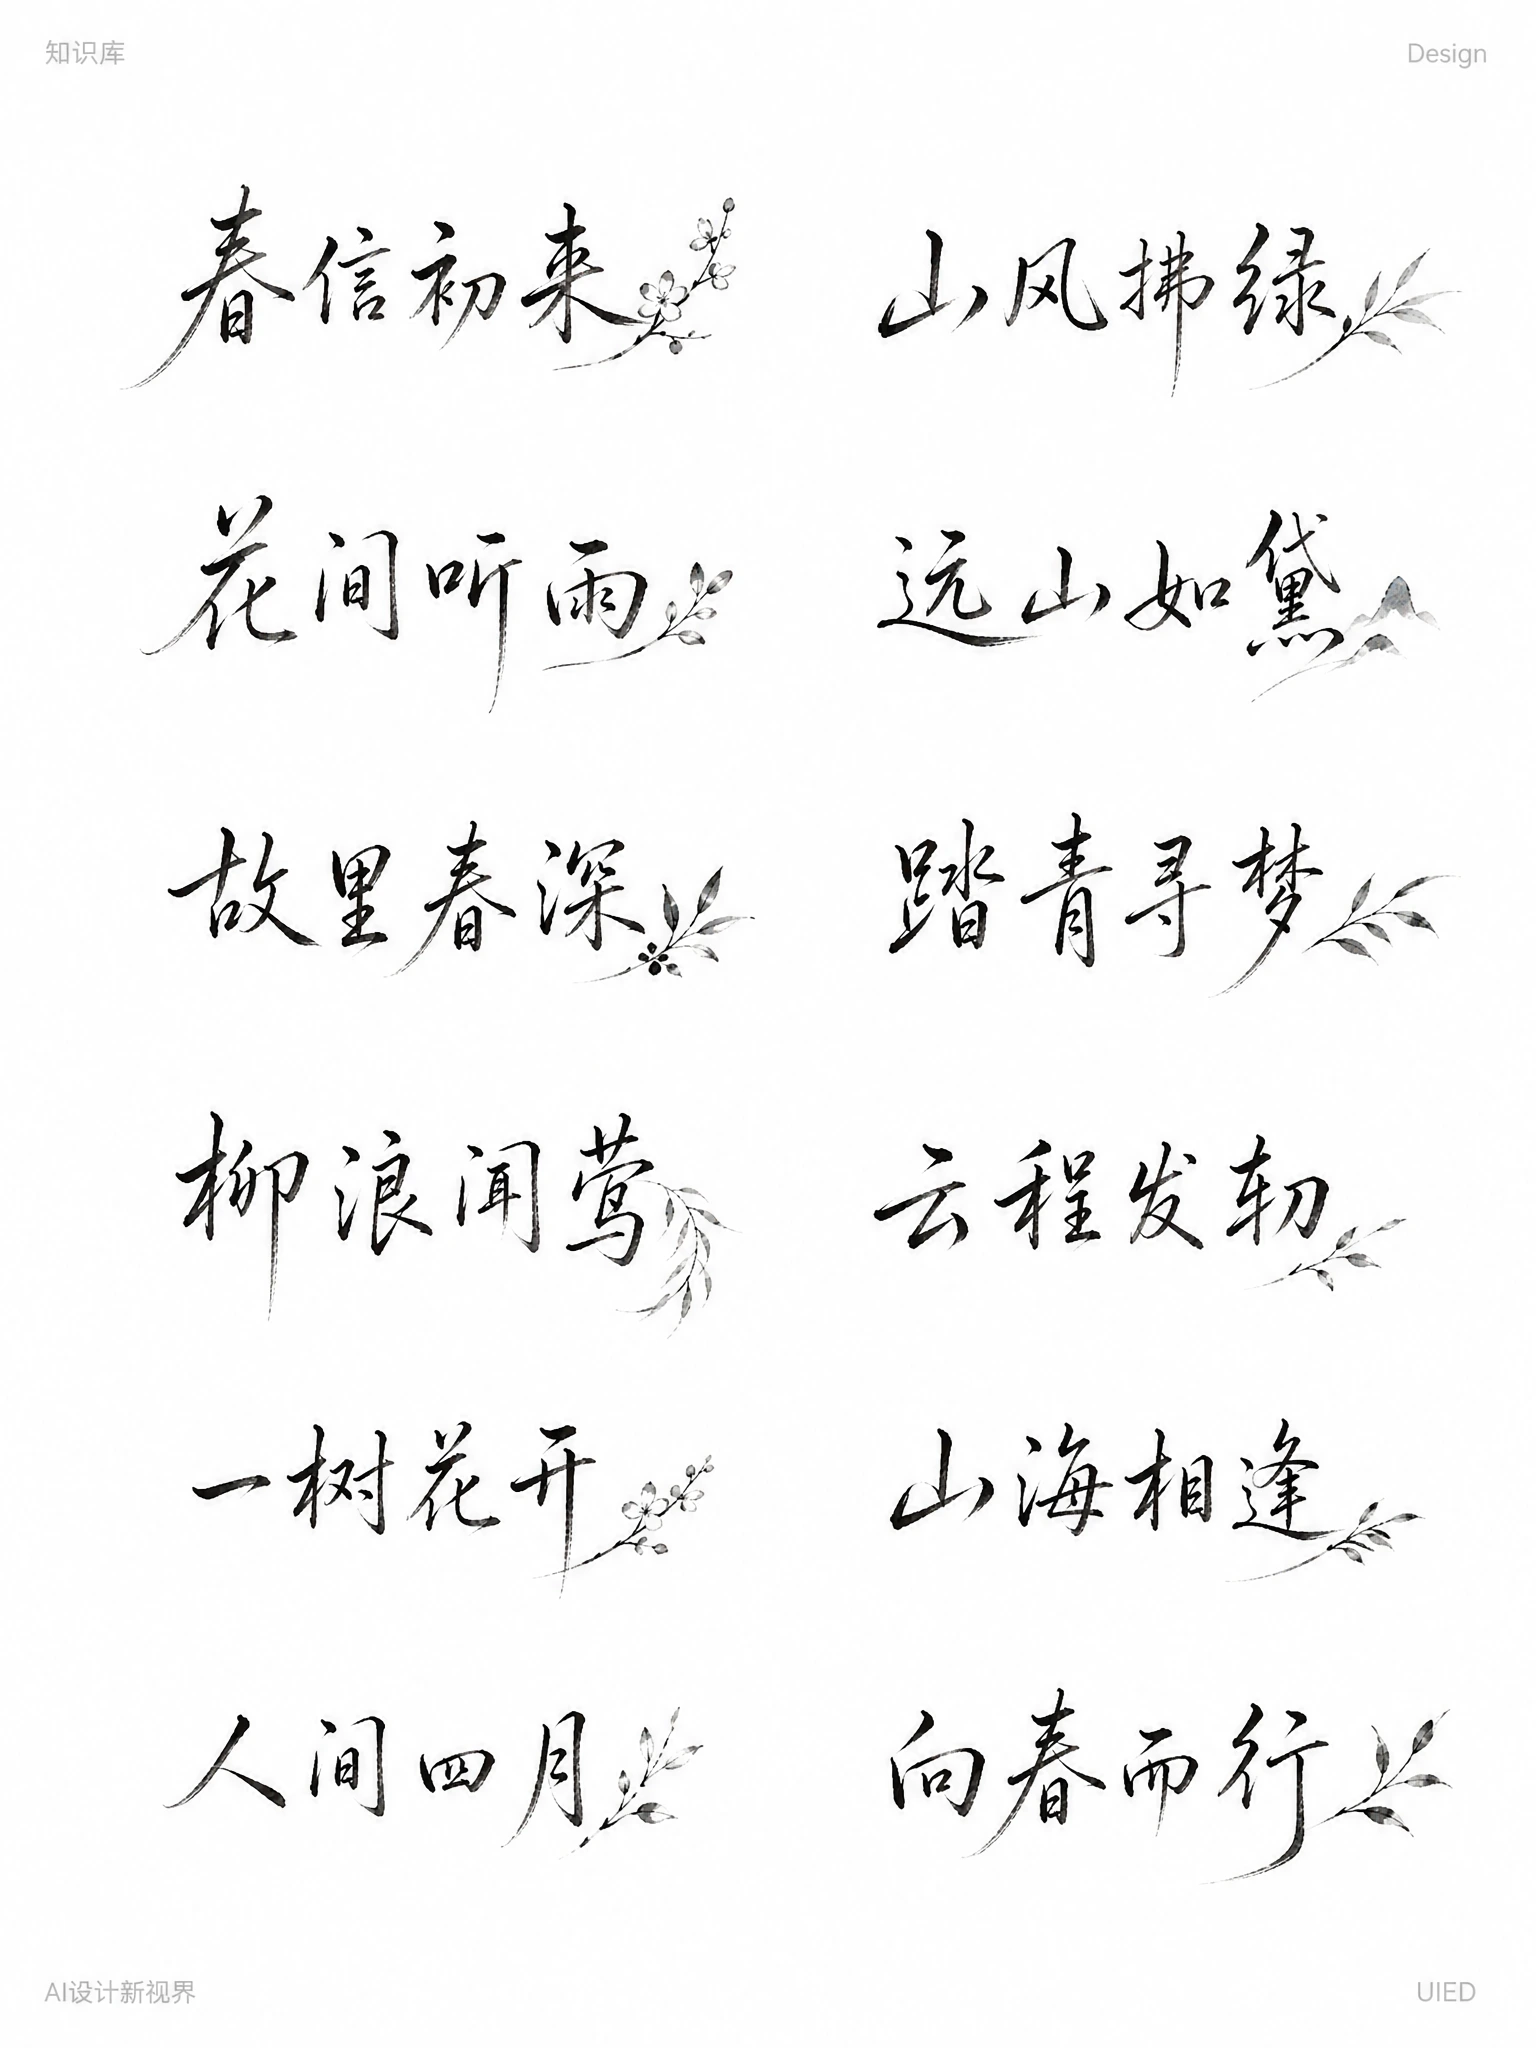 知识库 Design
春信初来 山风拂绿
花间听雨 远山如黛
故里春深 踏青寻梦
柳浪闻莺 云程发轫
一树花开 山海相逢
人间四月 向春而行
AI设计新视界 UIED